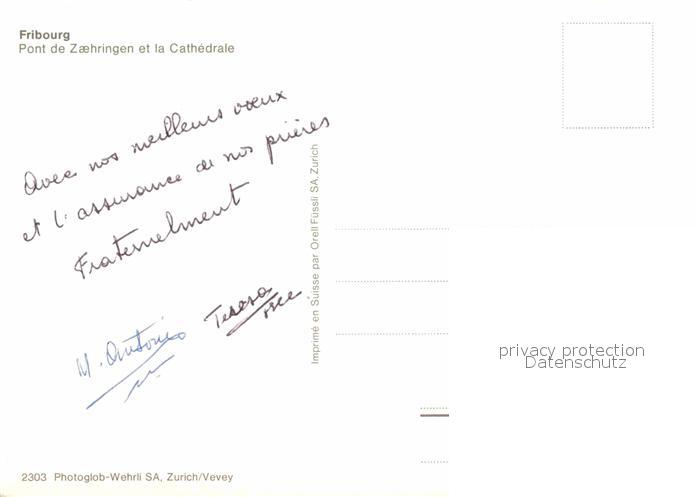 Fribourg
Pont de Zæhringen et la Cathédrale
Avec nos meilleurs vœux
et l'assurance de nos prières
Fraternelment
M. Antonio
Teresa
Imprimé en Suisse par Orell Füssli SA, Zurich
privacy protection
Datenschutz
2303 Photoglob-Wehrli SA, Zurich/Vevey